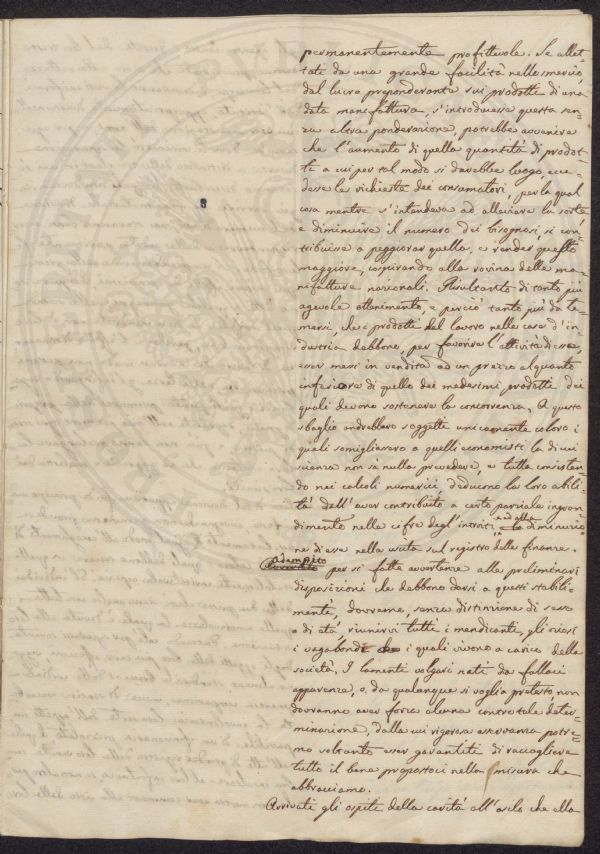 permanentemente profittevole. Se allet=
tati da una grande facilità nello smercio,
dal lucro preponderante sui prodotti di una
data manifattura, s'introducesse questa sen=
za altra ponderazione, potrebbe avvenire
che l'aumento di quella quantità di prodot=
ti a cui per tal modo si darebbe luogo, ecce=
desse le richieste dei consumatori, per la qual
cosa mentre s'intendeva ad alleviare la sorte
e diminuire il numero dei bisognosi, si con=
tribuisse a peggiorar quella, e render questo
maggiore, cospirando alla rovina delle ma=
nifatture nazionali. Risultanto di tanto più
agevole ottenimento, e perciò tanto più da te=
mersi, che i prodotti del lavoro nelle case d'in=
dustria debbono, per favorire l'attività di esse,
esser messi in vendita ad un prezzo alquanto
inferiore di quello dei medesimi prodotti dei
quali devono sostenere la concorrenza. A questo
sbaglio andrebbero soggetti unicamente coloro i
quali somigliassero a quelli economisti la di cui
scienza non sa nulla prevedere, e tutta consisten=
do nei calcoli numerici deducono la loro abili=
tà dall'aver contribuito a certo parziale ingran=
dimento nella cifra degl'introiti, ed alla diminuzio=
ne di esse nella uscita sul registro delle finanze.
adempito
per si fatte avvertenze alle preliminari
disposizioni che debbono darsi a questi stabili=
menti, dovremo, senza distinzione di sesso
o di età, riunirvi tutti i mendicanti, gli oziosi
i vagabondi i quali vivono a carico della
società. I lamenti volgari nati da fallaci
apparenze, o da qualunque si voglia pretesto non
dovranno aver forza alcuna contro tale deter=
minazione, dalla cui rigorosa osservanza potre=
mo soltanto esser garantiti di raccogliere
tutto il bene propostoci nella misura che
abbracciamo.
Arrivati gli ospiti della carità all'asilo che ella